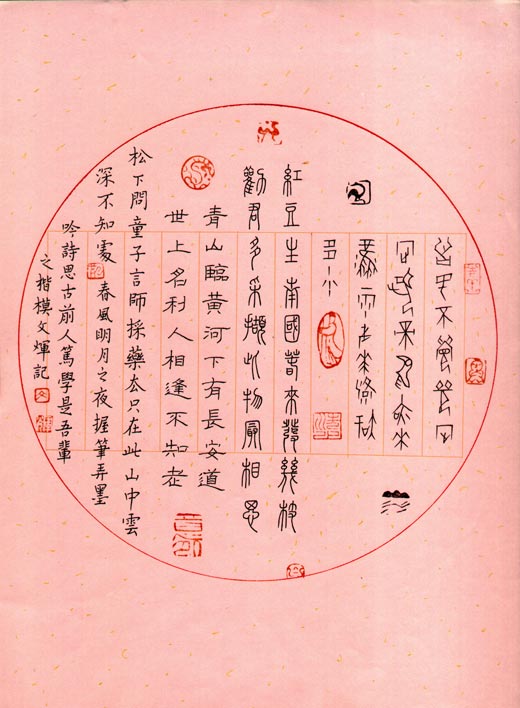 春眠不覺曉處
處聞啼鳥夜來
風雨聲花落知
多少
紅豆生南國春來發幾枝
勸君多采擷此物最相思
青山臨黃河下有長安道
世上名利人相逢不知老
松下問童子言師採藥去只在此山中雲
深不知處 春風明月之夜握筆弄墨
吟詩思古前人篤學是吾輩
之楷模文煇記